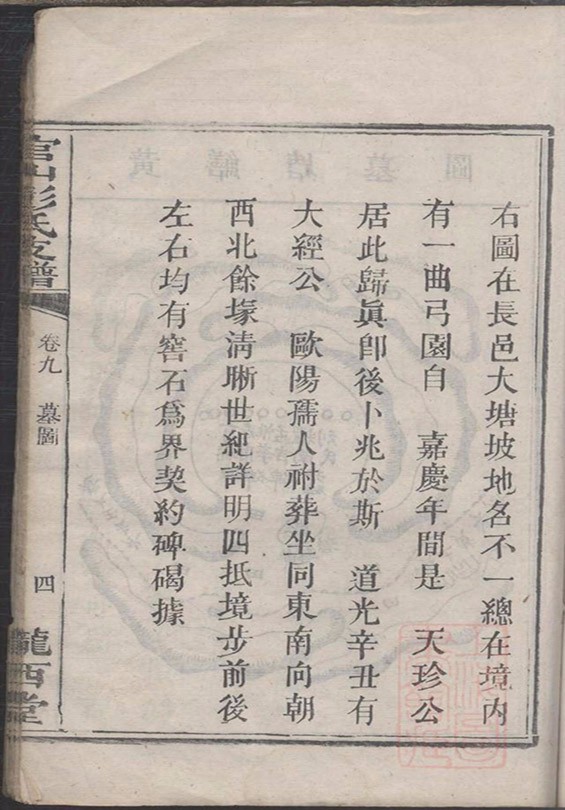 右圖在長邑大塘坡地名不一總在境內
有一曲弓園自 嘉慶年間是 天珍公
居此歸眞卽後卜兆於斯 道光辛丑有
大經公 歐陽孺人祔葬坐同東南向朝
西北餘塚淸晰世紀詳明四抵境步前後
左右均有窖石爲界契約碑碣據
官山彭氏支譜
卷九 墓圖
四
隴西堂